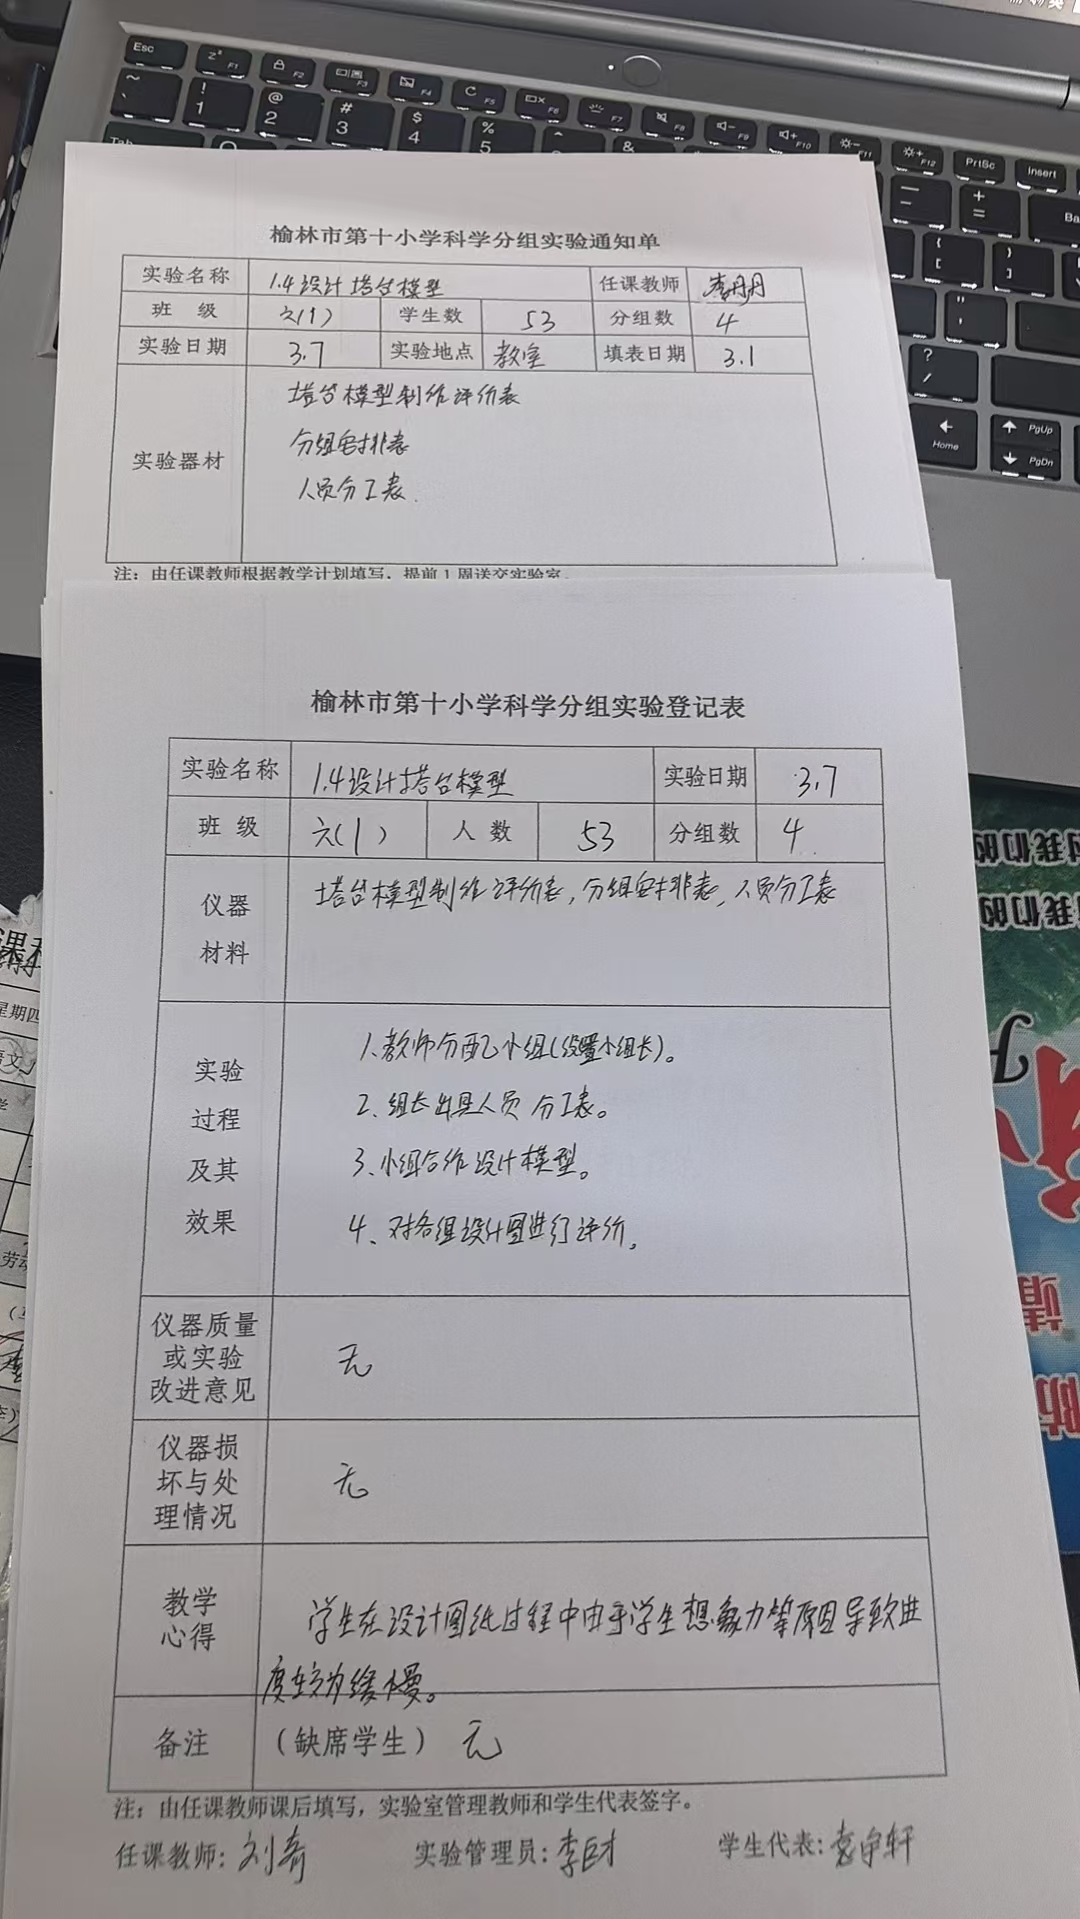 Esc F1 F2 F3 F4 F5 F6 F7 F8 F9 F10 F11 F12 PrtSc Insert
~ ! 1 @ 2 # 3 $ 4 % 5 & + = Ba
Tab { [ } ]
" ' ? /
Home PgUp PgDn
榆林市第十小学科学分组实验通知单
实验名称 1.4设计塔台模型 任课教师 李丹丹
班 级 六(1) 学生数 53 分组数 4
实验日期 3.7 实验地点 教室 填表日期 3.1
实验器材
塔台模型制作评价表
分组安排表
人员分工表.
注：由任课教师根据教学计划填写，提前1周送交实验室。
榆林市第十小学科学分组实验登记表
实验名称 1.4设计塔台模型 实验日期 3.7
班 级 六(1) 人 数 53 分组数 4
仪器
材料
塔台模型制作评价表,分组安排表,人员分工表
实验
过程
及其
效果
1.教师分配小组(设置小组长)。
2.组长出具人员分工表。
3.小组合作设计模型。
4、对各组设计图进行评价。
仪器质量
或实验
改进意见
无
仪器损
坏与处
理情况
无
教学
心得
学生在设计图纸过程中由于学生想象力等原因导致进
度较为缓慢。
备注 (缺席学生) 无
注：由任课教师课后填写，实验室管理教师和学生代表签字。
任课教师: 刘奇 实验管理员: 李巨才 学生代表: 袁宇轩
星期四